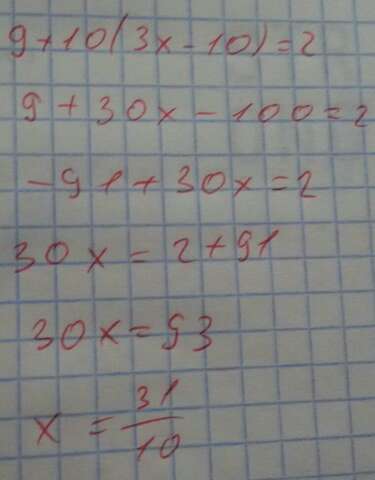 9+10(3x-10)=2
9+30x-100=2
-91+30x=2
30x=2+91
30x=93
x=31/10